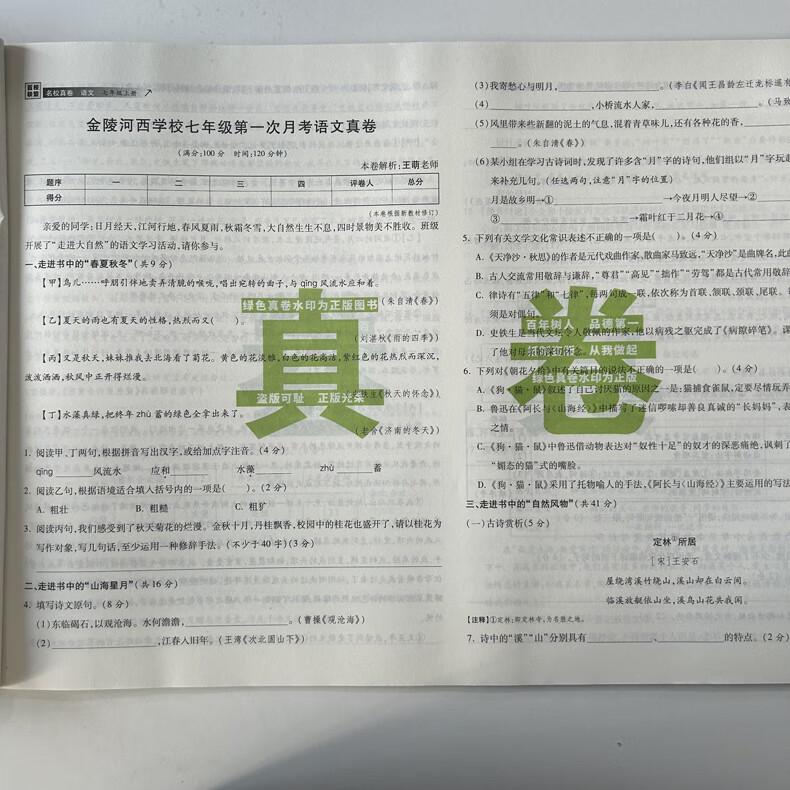 名校真卷 语文 七年级上册
金陵河西学校七年级第一次月考语文真卷
(满分:100分 时间:120分钟)
本卷解析:王萌老师
题序 一 二 三 四 评卷人 总分
得分
(本卷根据新教材修订)
亲爱的同学:日月经天,江河行地,春风夏雨,秋霜冬雪,大自然生生不息,四时景物美不胜收。班级
开展了“走进大自然”的语文学习活动,请你参与。
一、走进书中的“春夏秋冬”(共9分)
【甲】鸟儿……呼朋引伴地卖弄清脆的喉咙,唱出宛转的曲子,与 qīng 风流水应和着。
(朱自清《春》)
【乙】夏天的雨也有夏天的性格,热烈而又( )。
(刘湛秋《雨的四季》)
【丙】又是秋天,妹妹推我去北海看了菊花。黄色的花淡雅,白色的花高洁,紫红色的花热烈而深沉,
泼泼洒洒,秋风中正开得烂漫。
(史铁生《秋天的怀念》)
【丁】水藻真绿,把终年 zhù 蓄的绿色全拿出来了。
(老舍《济南的冬天》)
1. 阅读甲、丁两句,根据拼音写出汉字,或给加点字注音。(4分)
qīng ____ 风流水 应和____ 水藻____ zhù ____ 蓄
2. 阅读乙句,根据语境选择合适填入括号内的一项是( )。(2分)
A. 粗壮 B. 粗糙 C. 粗犷
3. 阅读丙句,我们感受到了秋天菊花的烂漫。金秋十月,丹桂飘香,校园中的桂花也盛开了,请以桂花为
写作对象,写几句话,至少运用一种修辞手法。(不少于40字)(3分)
二、走进书中的“山海星月”(共16分)
4. 填写诗文原句。(8分)
(1)东临碣石,以观沧海。水何澹澹,____。(曹操《观沧海》)
(2)____,江春入旧年。(王湾《次北固山下》)
(3)我寄愁心与明月,____。(李白《闻王昌龄左迁龙标遥有
(4)____,小桥流水人家,____。(马致
(5)风里带来些新翻的泥土的气息,混着青草味儿,还有各种花的香,____
____。(朱自清《春》)
(6)某小组在学习古诗词时,发现了许多含“月”字的诗句,他们组以“月”字玩起
来补充几句。(任选两句,注意“月”字的位置)
月是故乡明→①____→今夜月明人尽望→②____
③____→霜叶红于二月花→④____
5. 下列有关文学文化常识表述不正确的一项是( )。(4分)
A. 《天净沙·秋思》的作者是元代戏曲作家、散曲家马致远,“天净沙”是曲牌名,此曲
B. 古人交流常用敬辞与谦辞,“尊君”“高见”“拙作”“劳驾”都是古代常用敬辞
C. 律诗有“五律”和“七律”,每两句成一联,依次称为首联、颔联、颈联、尾联。律
须是对偶句。
D. 史铁生是当代文坛令人敬佩的作家,他以病残之躯完成了《病隙碎笔》。课
了他对母亲的深切怀念。
6. 下列对《朝花夕拾》中有关篇目的说法不正确的一项是( )。(4分)
A. 《狗·猫·鼠》叙述了自己讨厌猫的原因之一是:猫捕食雀鼠,定要尽情玩弄
B. 鲁迅在《阿长与〈山海经〉》中描写了迷信啰嗦却善良真诚的“长妈妈”,表
之情。
C. 《狗·猫·鼠》中鲁迅借动物表达对“奴性十足”的奴才的深恶痛绝,讽刺了
“媚态的猫”式的嘴脸。
D. 《狗·猫·鼠》采用了托物喻人的手法,《阿长与〈山海经〉》主要运用的写法
三、走进书中的“自然风物”(共41分)
(一)古诗赏析(5分)
定林①所居
[宋]王安石
屋绕湾溪竹绕山,溪山却在白云间。
临溪放艇依山坐,溪鸟山花共我闲。
【注释】①定林:即定林寺,为名胜之地。
7. 诗中的“溪”“山”分别具有____、____的特点。(2分)
绿色真卷水印为正版图书
真
盗版可耻 正版光荣
百年树人 品德第一
卷
从我做起
绿色真卷水印为正版